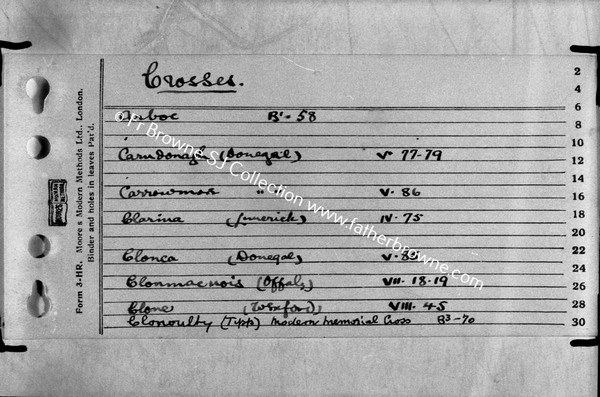 Crosses.
Arboc B'- 58
Carndonagh (Donegal) V. 77-79
Carrowmore " V. 86
Clarina (Limerick) IV. 75
Clonca (Donegal) V. 85
Clonmacnois (Offaly) VII. 18-19
Clone (Wexford) VIII. 45
Clonoulty (Tipp) Modern Memorial Cross B3-70
2
4
6
8
10
12
14
16
18
20
22
24
26
28
30
Form 3-HR. Moore's Modern Methods Ltd., London.
Binder and holes in leaves Pat'd.
©Fr Browne SJ Collection www.fatherbrowne.com